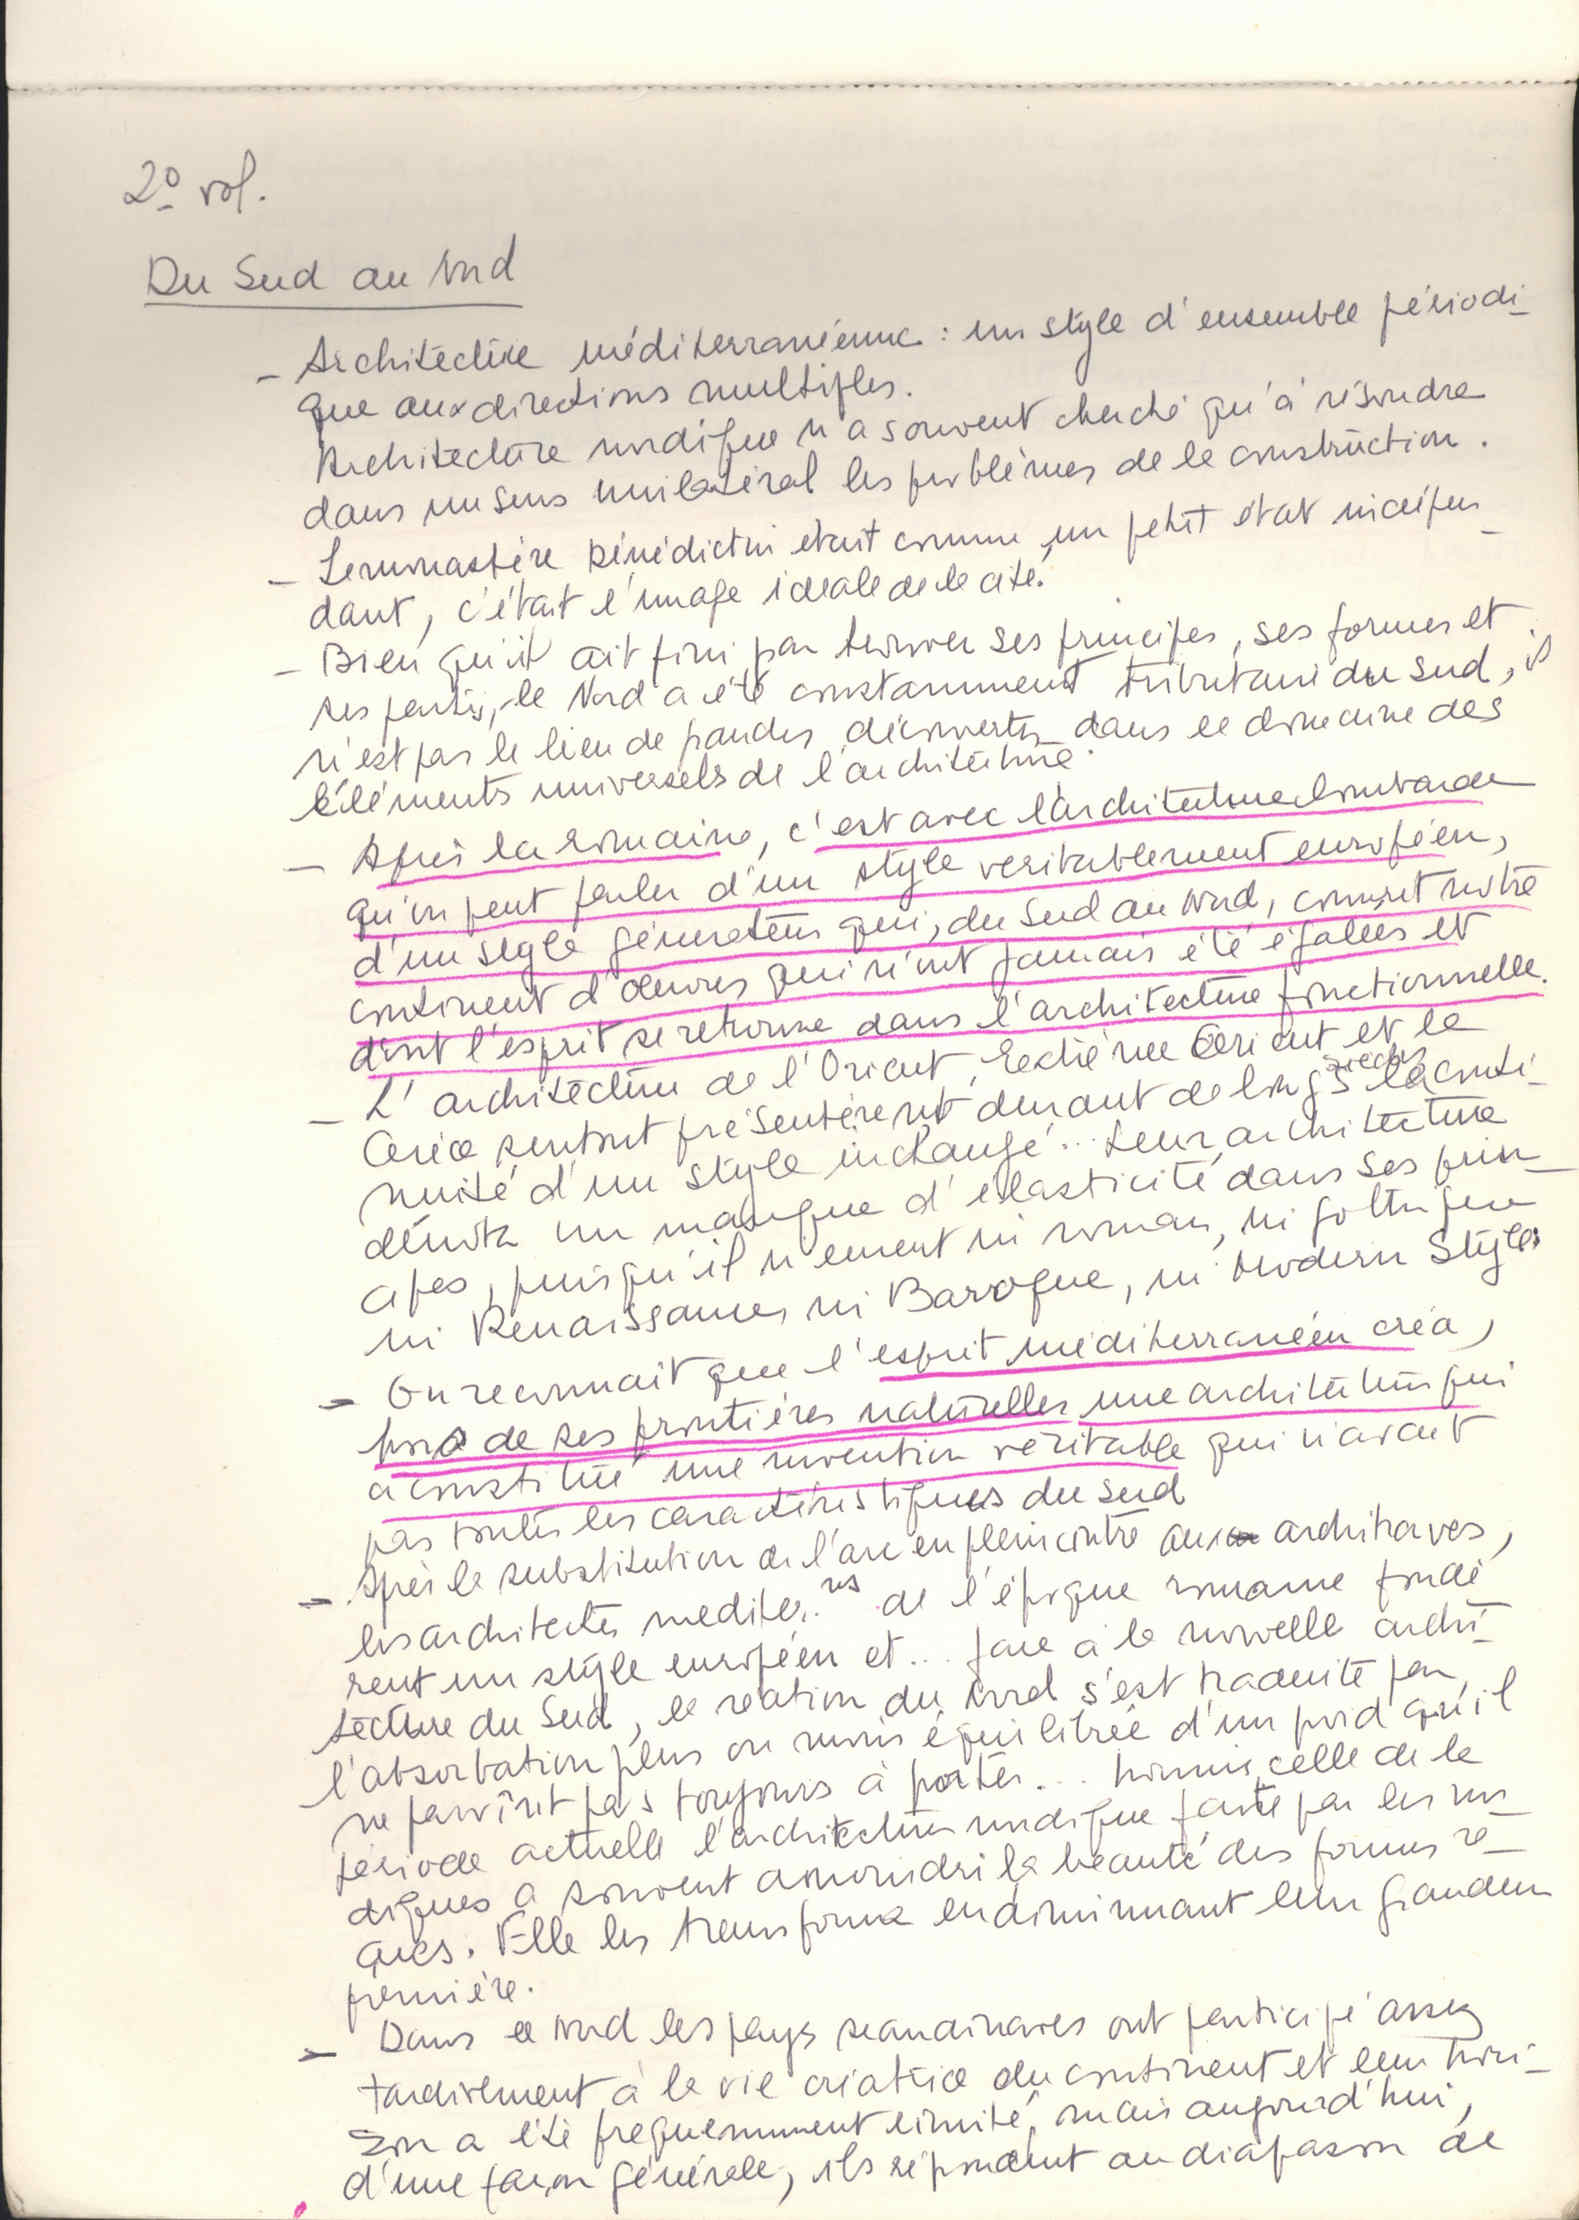 2º vol.
Du Sud au Nord
- Architectúre méditerranéenne : un style d'ensemble périodi-
que aux directions multiples.
Architectúre nordique n'a souvent cherché qu'à résoudre
dans un sens unilatéral les problèmes de la construction.
- Le monastère bénédictin était comme un petit état indépen-
dant, c'était l'image idéale de la cité.
- Bien qu'il ait fini par trouver ses principes, ses formes et
ses partis, le Nord a été constamment tributaire du Sud, il
n'est pas le lieu de grandes découvertes dans le domaine des
éléments universels de l'architecture.
- Après la romaine, c'est avec l'architecture lombarde
qu'on peut parler d'un style veritablement européen,
d'un style générateur qui, du Sud au Nord, couvrit notre
continent d'oeuvres qui n'ont jamais été égalées et
dont l'esprit se retrouve dans l'architecture fonctionnelle.
- L'architecture de l'Orient, Extrême Orient et la
Grèce surtout présentèrent durant de longs siècles la conti-
nuité d'un style inchangé... Leur architecture
dénota un manque d'élasticité dans ses prin-
cipes, puisqu'il n'eurent ni roman, ni gothique
ni Renaissance, ni Baroque, ni Modern Style.
- On reconnait que l'esprit méditerranéen créa,
hors de ses frontières naturelles une architecture qui
a constitué une invention véritable qui n'avait
pas toutes les caractéristiques du Sud
- Après la substitution de l'arc en plein cintre aux architraves,
les architectes mediter.res de l'époque romane fondè
rent un style européen et... face à la nouvelle archi-
tecture du Sud, la réation du Nord s'est traduite par
l'absorbation plus ou moins équilibrée d'un poid qu'il
ne parvint pas toujours à porter... hormis celle de la
période actuelle l'architecture nordique faite par les nor-
diques a souvent amoindri la beauté des formes re-
çues. Elle les transforma en diminuant leur grandeur
première.
- Dans le Nord les pays scandinaves ont participé assez
tardivement à la vie créatrice du continent et leur hori-
zon a été frequemment limité, mais aujourd'hui,
d'une façon générale, ils répondent au diapason de